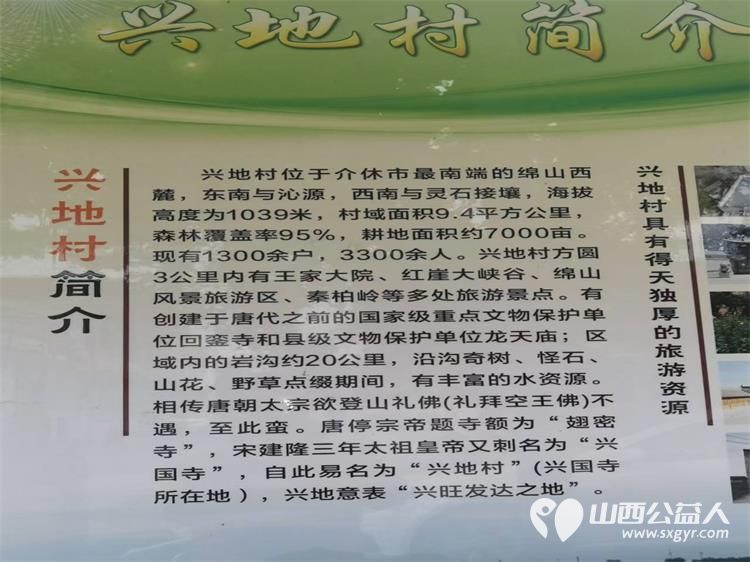 兴地村简介
兴地村简介
兴地村位于介休市最南端的绵山西
麓，东南与沁源，西南与灵石接壤，海拔
高度为1039米，村域面积9.4平方公里，
森林覆盖率95%，耕地面积约7000亩。
现有1300余户，3300余人。兴地村方圆
3公里内有王家大院、红崖大峡谷、绵山
风景旅游区、秦柏岭等多处旅游景点。有
创建于唐代之前的国家级重点文物保护单
位回銮寺和县级文物保护单位龙天庙；区
域内的岩沟约20公里，沿沟奇树、怪石、
山花、野草点缀期间，有丰富的水资源。
相传唐朝太宗欲登山礼佛(礼拜空王佛)不
遇，至此蛮。唐停宗帝题寺额为“翅密
寺”，宋建隆三年太祖皇帝又刺名为“兴
国寺”，自此易名为“兴地村”(兴国寺
所在地)，兴地意表“兴旺发达之地”。
兴地村具有得天独厚的旅游资源
山西公益人
www.sxgyr.com